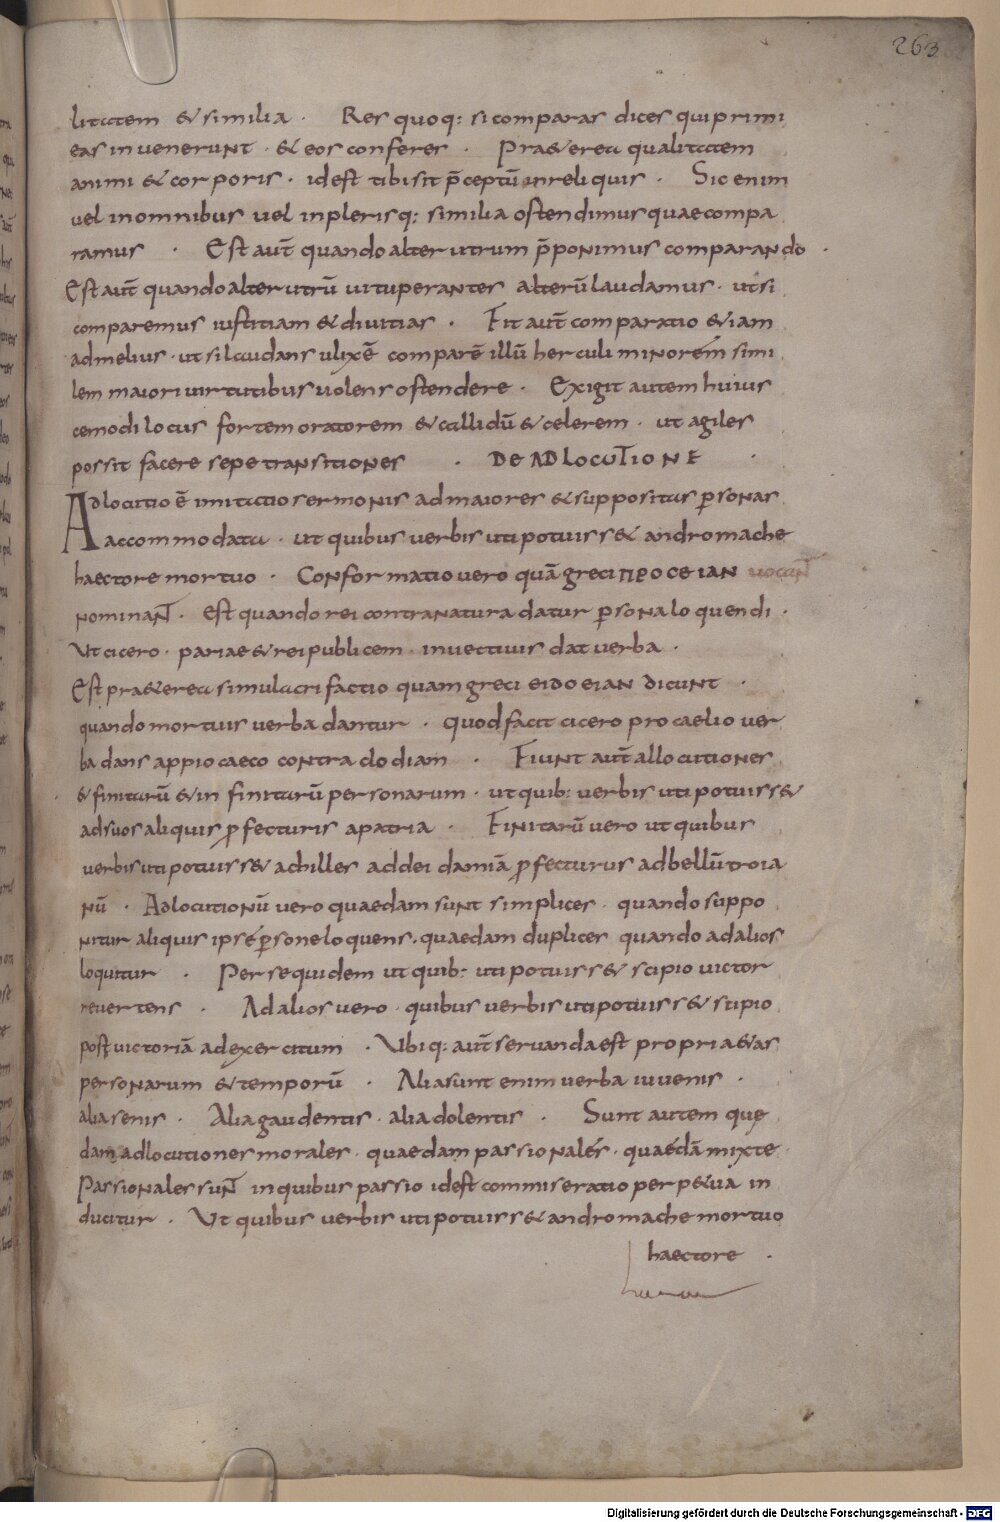 263
litatem & similia · Res quoq: si comparas dices qui primi
eas inuenerunt · & eos conferes · Praeterea qualitatem
animi & corporis · id est tibi sit p̄ceptū in reliquis · Sic enim
uel in omnibus uel in plerisq: similia ostendimus quae compa
ramus · Est aut̄ quando alterutrum p̄ponimus comparando ·
Est aut̄ quando alterutrū uituperantes alterū laudamus · ut si
comparemus iustitiam & diuitias · Fit aut̄ comparatio &iam
ad melius · ut si laudans ulixē comparē illū herculi minorem simi
lem maiori uirtutibus uolens ostendere · Exigit autem huius
cemodi locus fortem oratorem & callidū & celerem · ut agiles
possit facere sepe transitiones · DE ADLOCUTIONE ·
Adlocutio ē imitatio sermonis ad maiores & suppositas p̱sonas
accommodata · ut quibus uerbis uti potuiss& andromache
haectore mortuo · Conformatio uero quā greci ΠΡΟCΕΙΑΝ uocan̄
nominan̄ · est quando rei contra natura datur p̱sona loquendi ·
Ut cicero · patriae & rei publicem · inuectiuis dat uerba ·
Est praeterea simulacri factio quam greci EIDOEIAN dicunt ·
quando mortuis uerba dantur · quod facit cicero pro caelio uer
ba dans appio caeco contra clodiam · Fiunt aut̄ allocutiones
& finitarū & infinitarū personarum · ut quib: uerbis uti potuiss&
ad suos aliquis p̱fecturis a patria · Finitarū uero ut quibus
uerbis uti potuiss& achilles ad deidamiā p̱fecturus ad bellū troia
nū · Adlocutionū uero quaedam sunt simplices · quando suppo
nitur aliquis ipse p̱sone loquens · quaedam duplices quando ad alios
loquitur · Per se quidem ut quib: uti potuiss& scipio uictor
reuertens · Ad alios uero · quibus uerbis uti potuiss& scipio
post uictoriā ad exercitum · Ubiq: aut̄ seruanda est propri&as
personarum & temporū · Alia sunt enim uerba iuuenis ·
alia senis · Alia gaudentis · alia dolentis · Sunt autem quę
dam adlocutiones morales · quaedam passionales · quaedā mixte ·
Passionales sun̄ in quibus passio id est commiseratio perp&ua in
ducitur · Ut quibus uerbis uti potuiss& andromache mortuo
haectore ·
Digitalisierung gefördert durch die Deutsche Forschungsgemeinschaft - DFG